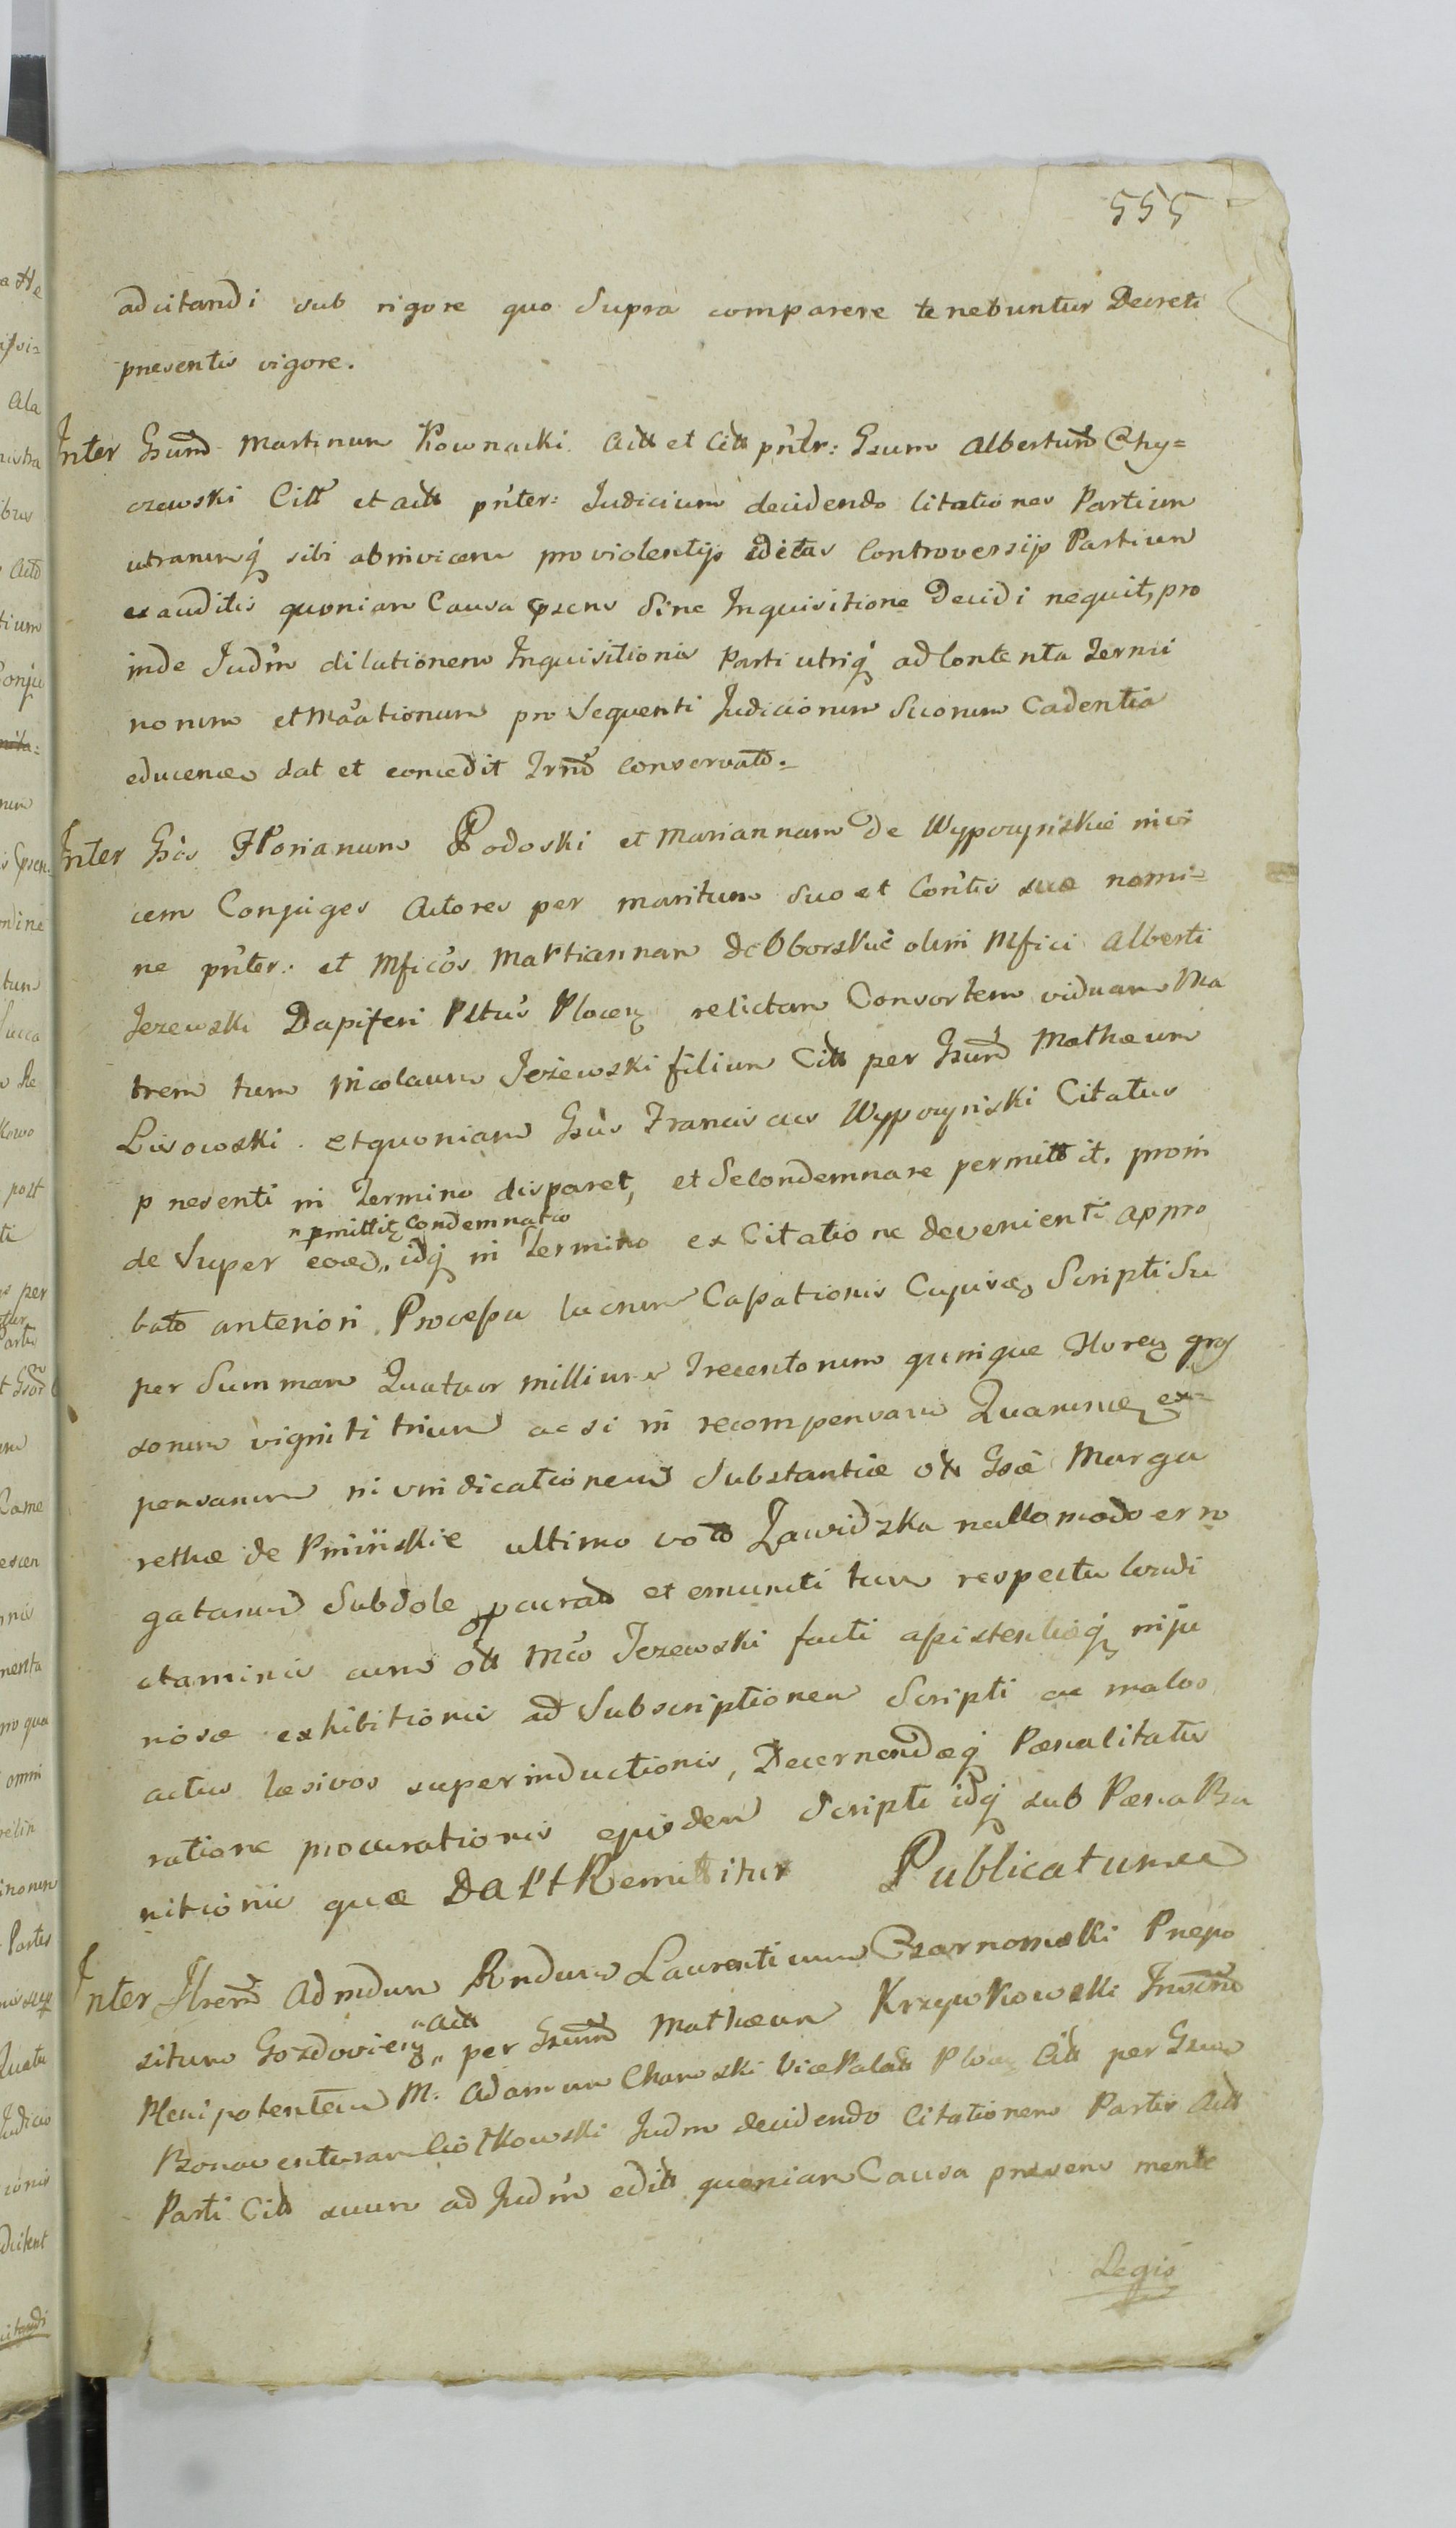 555
adcitandi sub rigore quo Supra comparere tenebuntur Decreti
presentis vigore.
Inter Gsum Martinum Kownacki Actt et Citt pnter: Gsum Albertum Chy=
czewski Citt et actt pnter: Judicium decidendo Citationes Partium
utrarumq sibi abinvicem pro violentijs editas Controversijs Partium
exauditis quoniam Causa psens Sine Inquisitione Decidi nequit, pro
inde Judm dilationem Inquisitionis Parti utriq ad Contenta Termi
norum et Maationum pro Sequenti Judiciorum Suorum Cadentia
educenes dat et concedit Trnô conservato.
Inter Gsos Florianum Podoski et Mariannam de Wypczynskie invi
cem Conjuges Actores per maritum Suo et Contis suæ nomi=
ne pnter: et Mficos Martiannam de Oborskie olim Mfici Alberti
Jezewski Dapiferi Pltus Plocen relictam Consortem viduam Ma
trem tum Nicolaum Jeżewski filium Citt per Gsum Mathæum
Lisowski. et quoniam Gsus Franciscus Wypczynski Citatus
presenti in Termino disparet, et Se Condemnare permittit. proin
" pmittit Condemnatio
de Super eoed " idq in Termino ex Citatione devenienti appro
bato anteriori Processu lucrum Cassationis Cujusæ Scripti Su
per Summam Quatuor millium Trecentorum quinque floren gros
sorum viginti trium ac si in recompensam Quarumæ ex=
pensarum in vindicationem Substantiæ ott Gsæ Marga
rethæ de Pniińskie ultimo voto Zawidzka nullo modo erro
gatarum Subdole pcurato et emuncti tum respectu laudi
ctaminis cum ott Mco Jezewski facti assistentiæq inju
riosæ exhibitionis ad Subscriptionem Scripti ac malos
actus læsivos superinductionis, Decernendæq Pœnalitatis
ratione procurationis ejusdem Scripti idq sub Pœna Ban
nitionis quæ Da Pt Remittitur Publicatumæ
Inter Ilrem Admdum Rndum Laurentium Czarnomski Prepo
" Actt
situm Gozdovien " per Gsum Mathæum Krzywkowski Juratum
Plenipotentem M. Adamum Charski Vice Palatt Plocen Citt per Gsum
Bonaventuram Ciotkowski Judm decidendo Citationem Partis Actt
Parti Citt suum ad Judm editt quoniam Causa presens mente
Legis